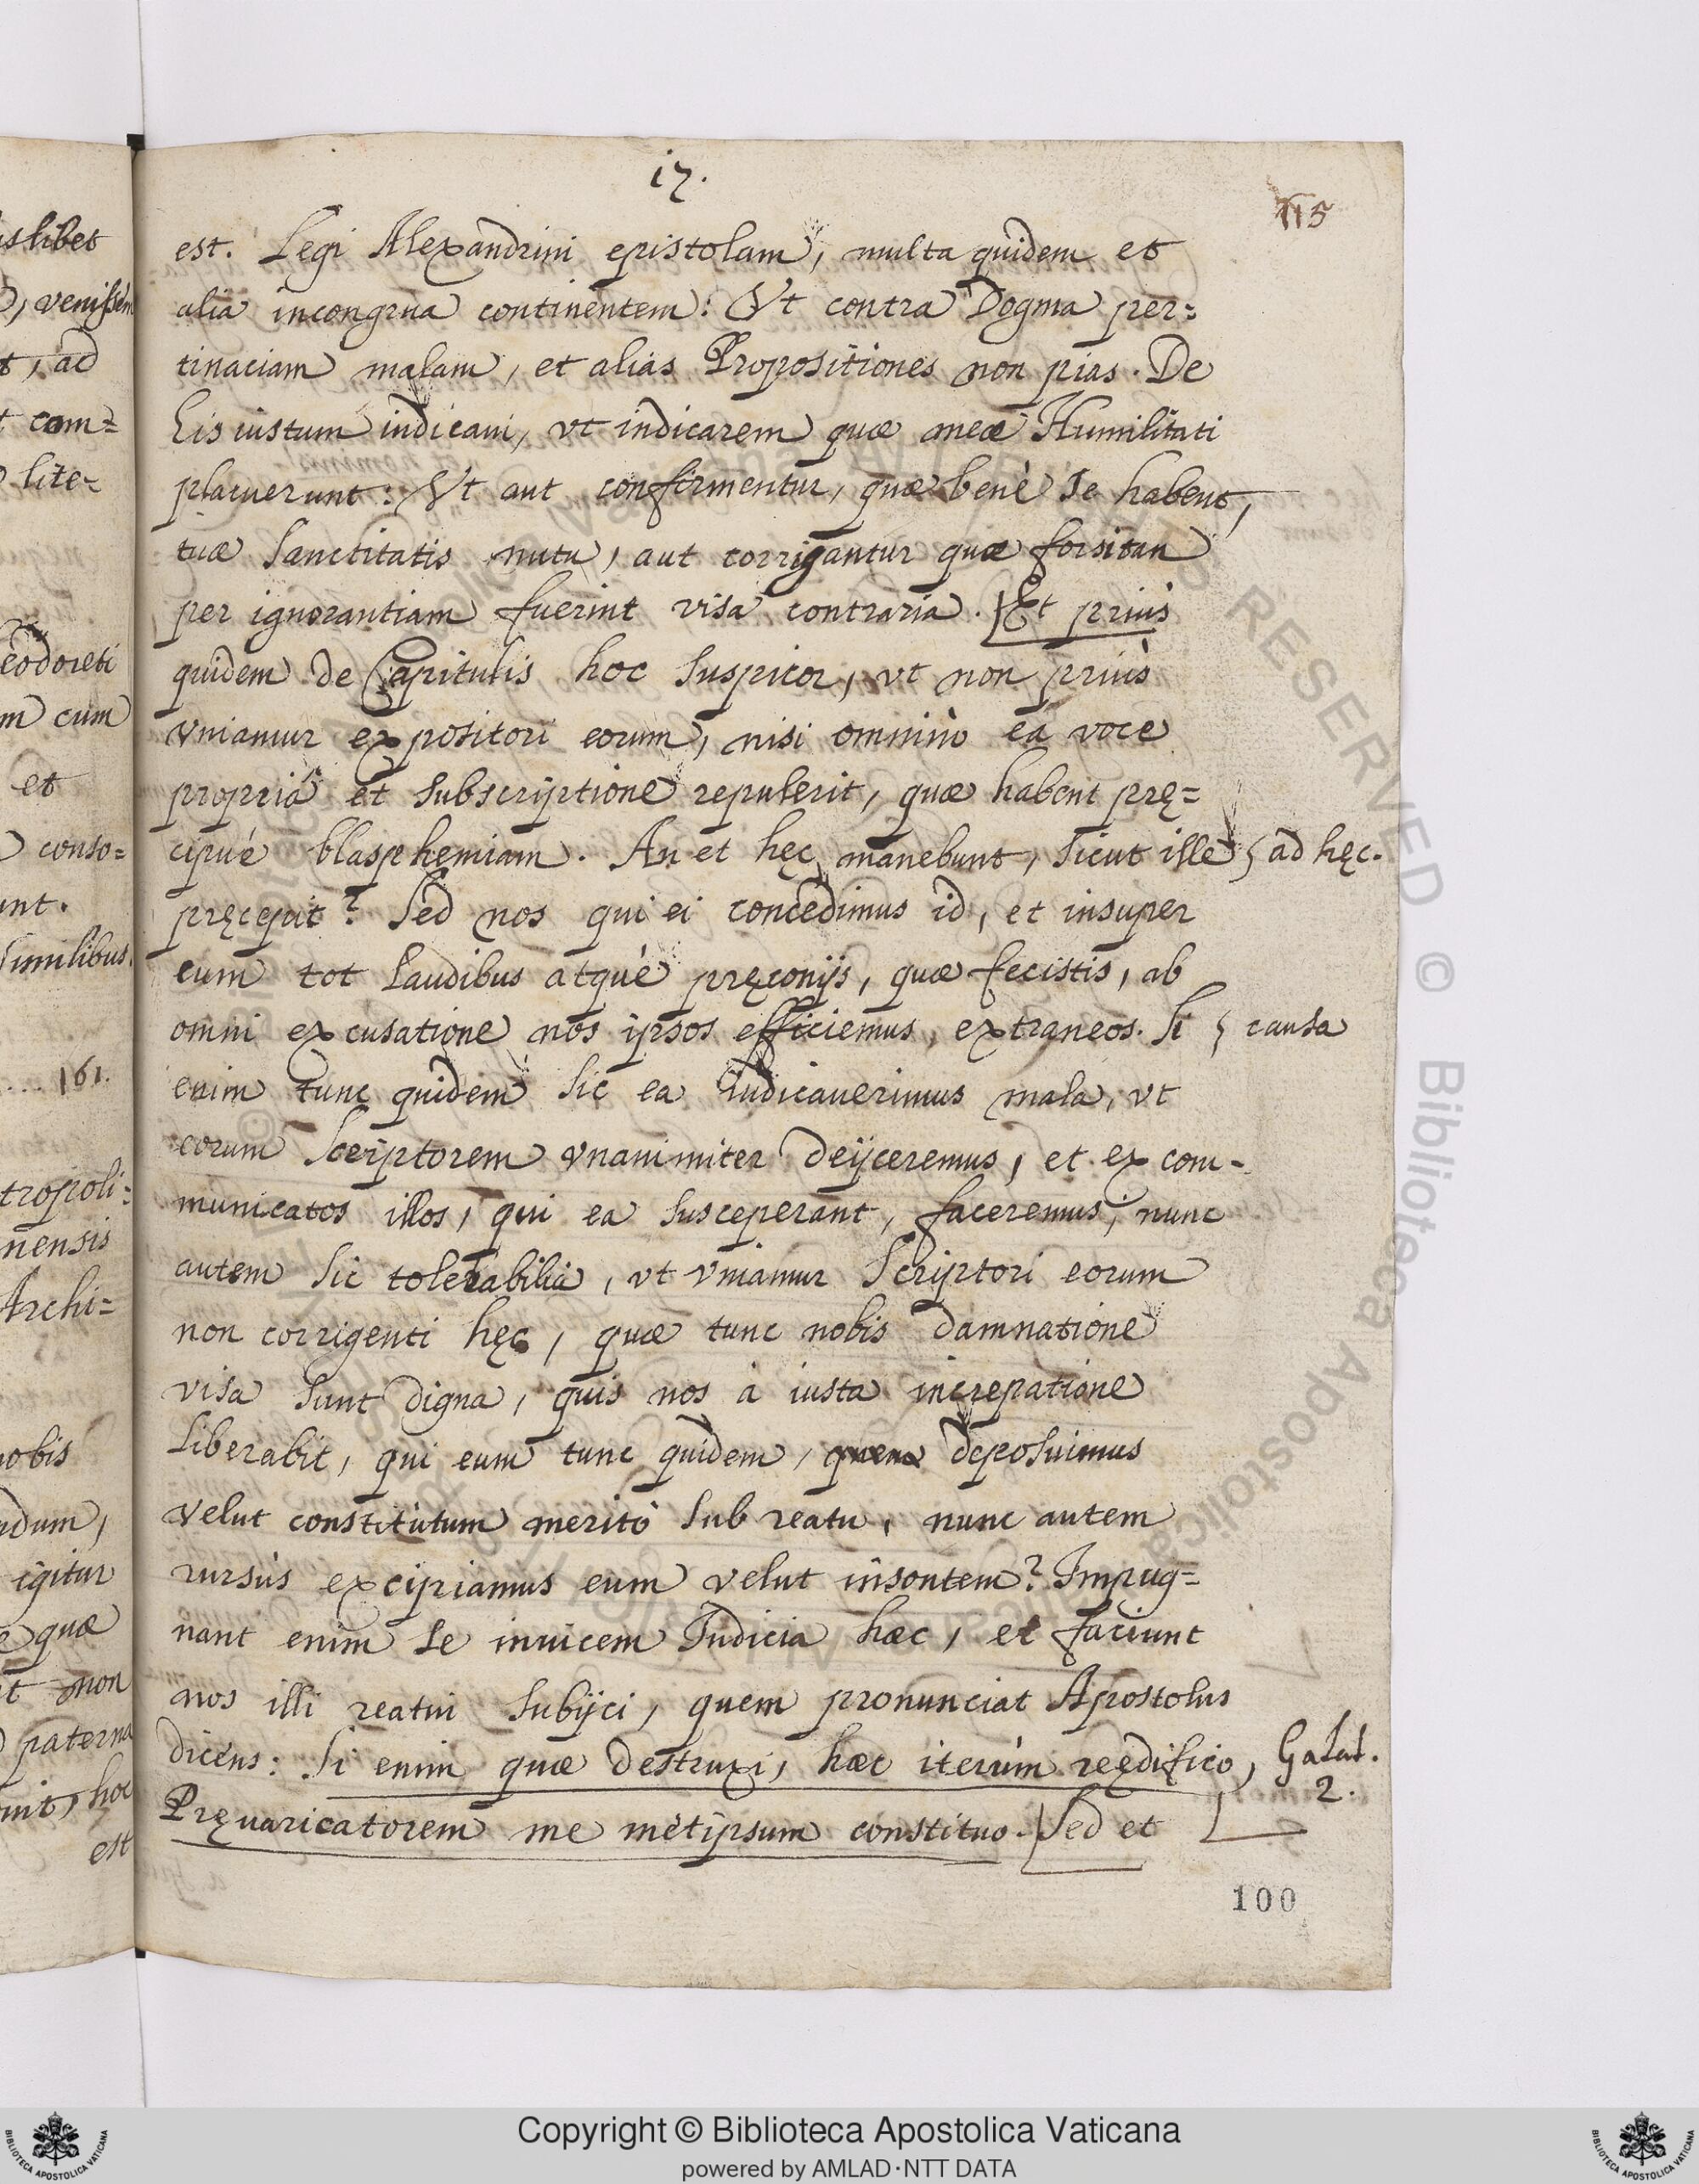 17.
115
est. Legi Alexandrini epistolam, multa quidem et
alia incongrua continentem: Vt contra Dogma per=
tinaciam malam, et alias Propositiones non pias. De
his iustum iudicaui, vt indicarem quæ meæ Humilitati
placuerunt: Vt aut confirmentur, quæ benè se habent,
tuæ Sanctitatis nutu, aut corrigantur quæ forsitan
per ignorantiam fuerint visa contraria. [Et priùs
quidem de Capitulis hoc suspicor, vt non priùs
vniamur expositori eorum, nisi omninò ea voce
propriâ et subscriptione repulerit, quæ habent prę=
cipuè blasphemiam. An et hęc manebunt, sicut ille } ad hęc.
pręcepit? Sed nos qui ei concedimus id, et insuper
eum tot laudibus atquè pręconijs, quæ fecistis, ab
omni excusatione nos ipsos efficiemus, extraneos. Si } causa
enim tunc quidem sic ea iudicauerimus mala, vt
eorum Scriptorem vnanimiter deijceremus, et excom-
municatos illos, qui ea susceperant, faceremus; nunc
autem sic tolerabilia, vt vniamur Scriptori eorum
non corrigenti hęc, quæ tunc nobis damnatione
visa sunt digna, quis nos à iusta increpatione
liberabit, qui eum tunc quidem, quem deposuimus
velut constitutum meritò sub reatu, nunc autem
rursùs excipiamus eum velut insontem? Impug=
nant enim se inuicem Iudicia hæc, et faciunt
nos illi reatui subijci, quem pronunciat Apostolus
dicens: Si enim quæ destruxi, hæc iterùm reędifico, Galat.
2.
Pręuaricatorem me metipsum constituo. [Sed et
100
islibet
, venissem
t, ad
t com=
lite=
eodoreti
m cum
et
conso=
unt.
similibus.
... 161.
tropoli=
nensis
Archi=
nobis
ndum,
igitur
quæ
t non
paterna
hoc
est
© Biblioteca Apostolica Vaticana
RESERVED © Biblioteca Apostolica Vaticana
Copyright © Biblioteca Apostolica Vaticana
powered by AMLAD·NTT DATA
BIBLIOTECA APOSTOLICA VATICANA
BIBLIOTECA APOSTOLICA VATICANA